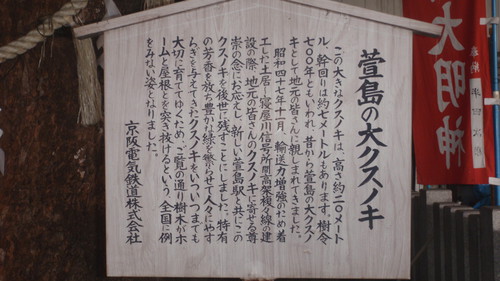 萱島の大クスノキ
この大きなクスノキは、高さ約二〇メート
ル、幹回りは約七メートルもあります。樹令
七〇〇年ともいわれ、昔から萱島の大クスノ
キとして地元の皆さんに親しまれてきました。
昭和四十七年十二月、輸送力増強のため着
工した土居―寝屋川信号所間高架複々線の建
設の際、地元の皆さんのクスノキに寄せる尊
崇の念にお応えし、新しい萱島駅と共にこの
クスノキを後世に残すことにしました。特有
の芳香を放ち豊かな緑を繁らせて人々にやす
らぎを与えてきたクスノキをいついつまでも
大切に育ててゆくため、ご覧の通り樹木がホ
ームと屋根とを突き抜けるという、全国に例
をみない姿となりました。
京阪電気鉄道株式会社
大明神